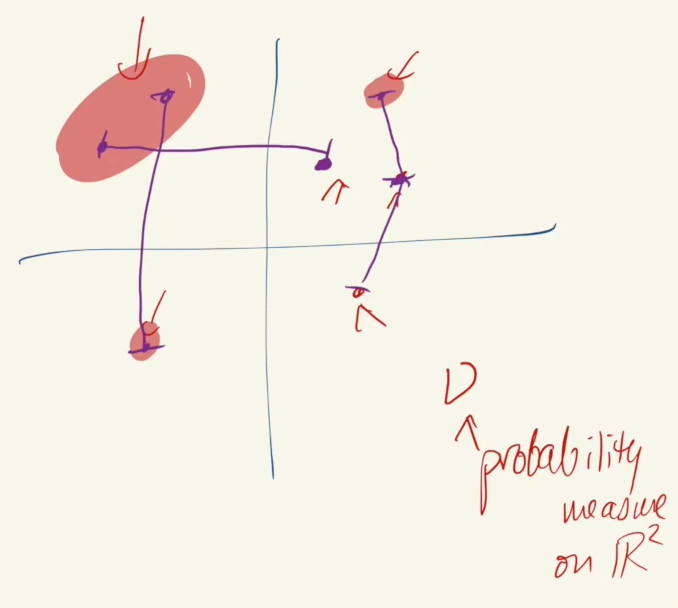 D
probability
measure
on ℝ²